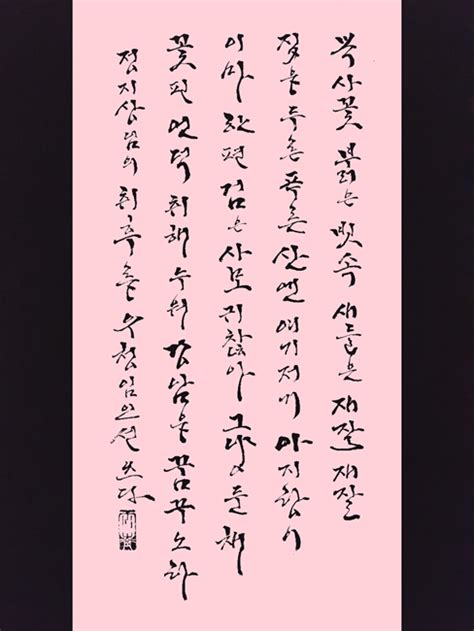 복사꽃 붉은 빗속 새들은 재잘재잘
집을 두른 푸른 산엔 여기저기 아지랑이
이마 한편 검은 사모 귀찮아 그냥 둔 채
꽃 핀 언덕 취해 누워 강남을 꿈꾸노라
정지상님의 취후를 우청 임인선 쓰다